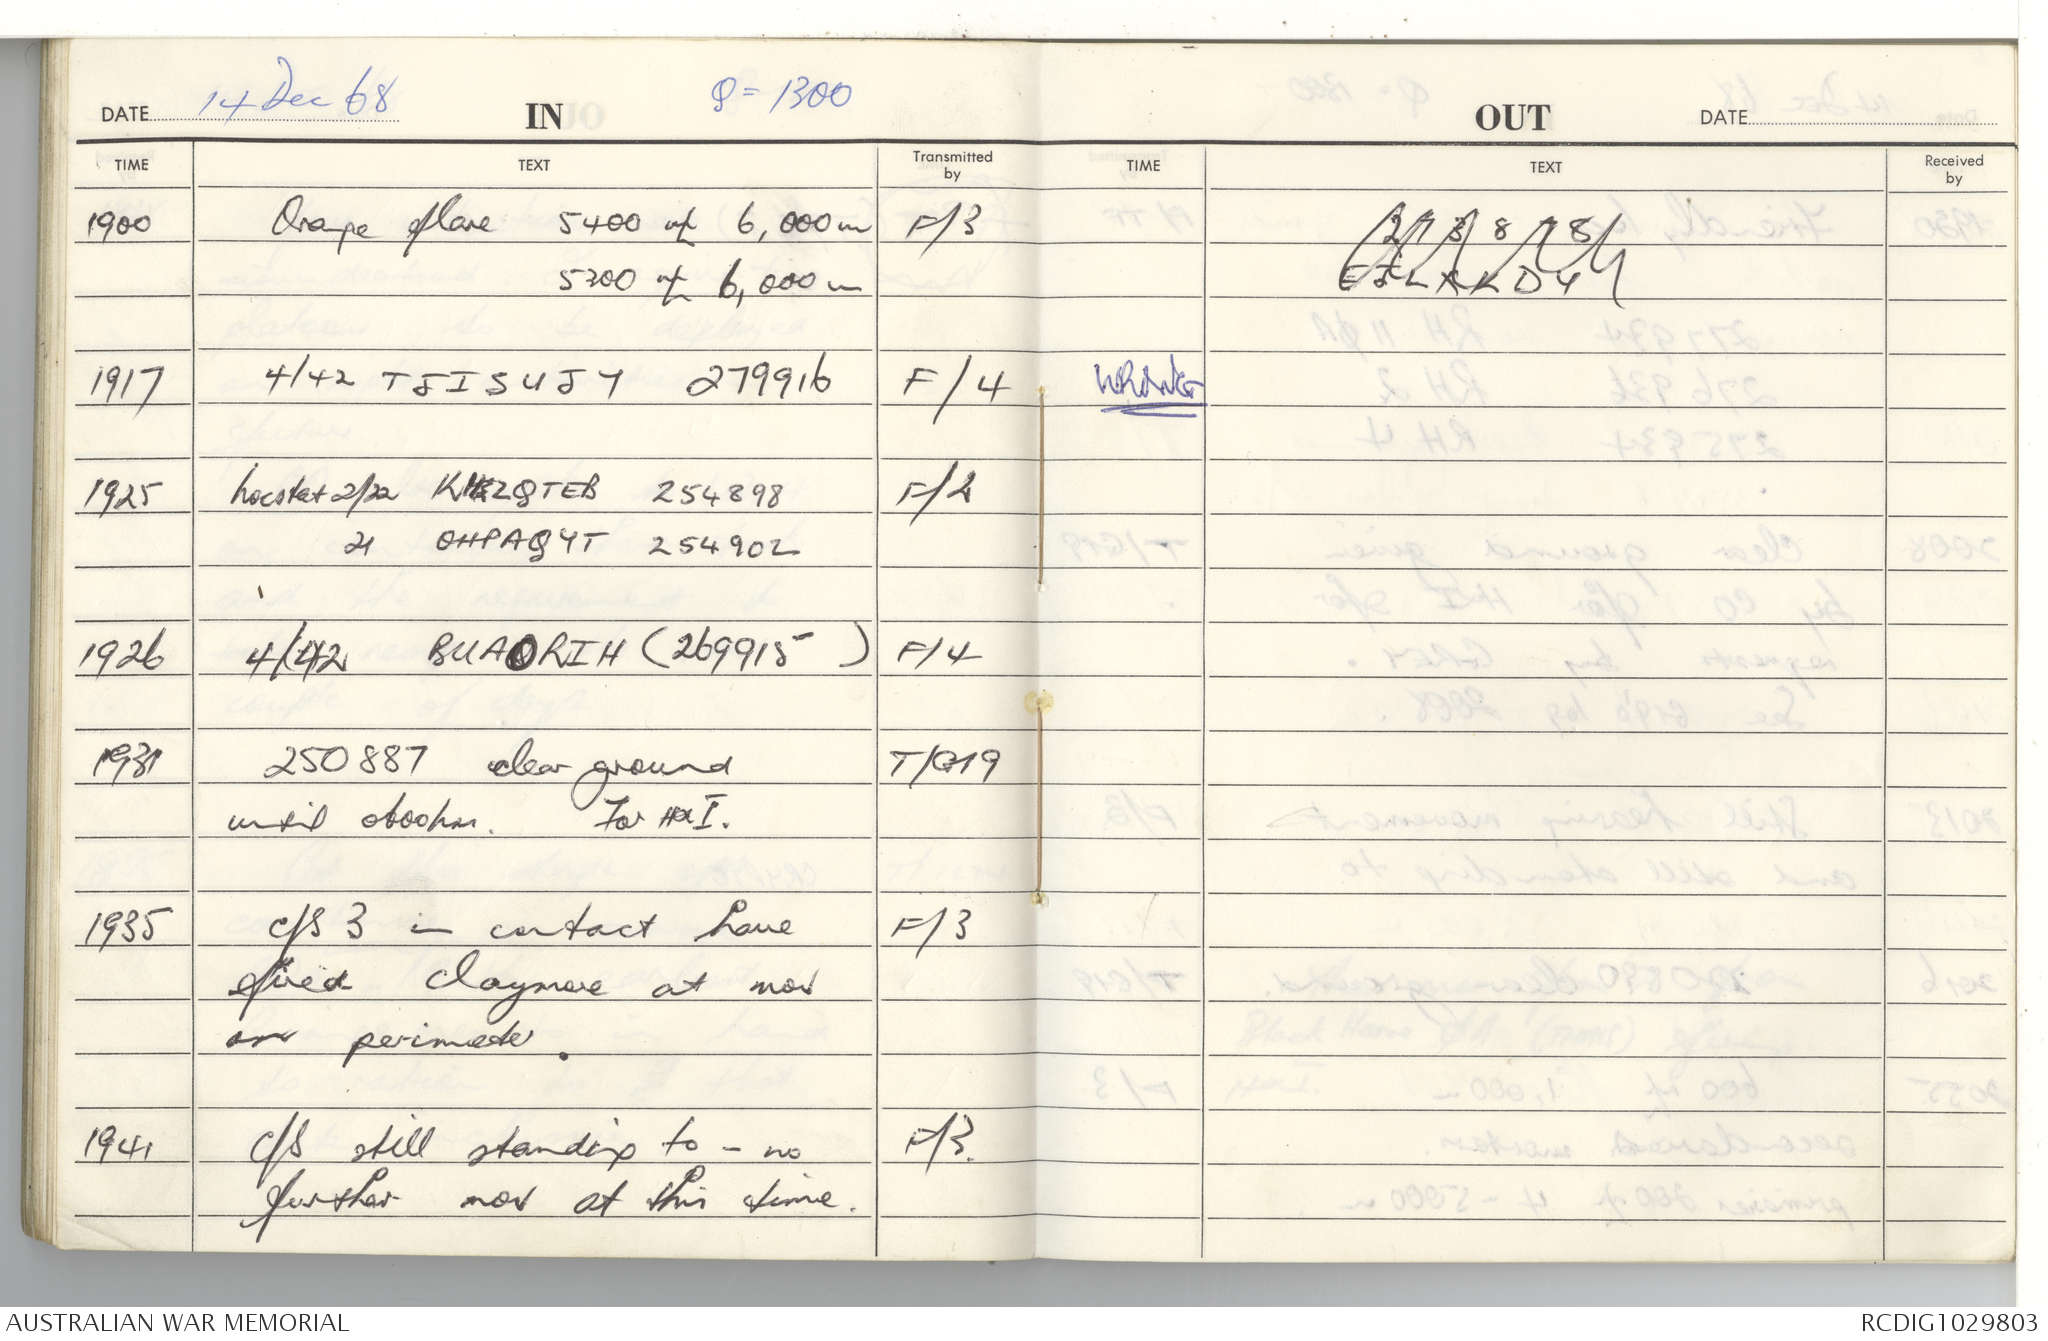 DATE 14 Dec 68 IN Q = 1300
TIME TEXT Transmitted by
1900 Orange flare 5400 mf 6,000 m F/3
5200 mf 6,000 m
1917 4/42 TJISUJY 279916 F/4
1925 locstat 2/22 ZQTEB 254898 F/2
21 OHPAQYT 254902
1926 4/42 BUAORIH (269915) F/4
1931 250887 clear ground T/G19
until 0600hrs. For H&I.
1935 C/S 3 in contact have F/3
fired Claymore at mov
on perimeter.
1941 C/S still standing to - no F/3.
further mov at this time.
OUT DATE
TIME TEXT Received by
EJLRKDY
WRONG
AUSTRALIAN WAR MEMORIAL RCDIG1029803